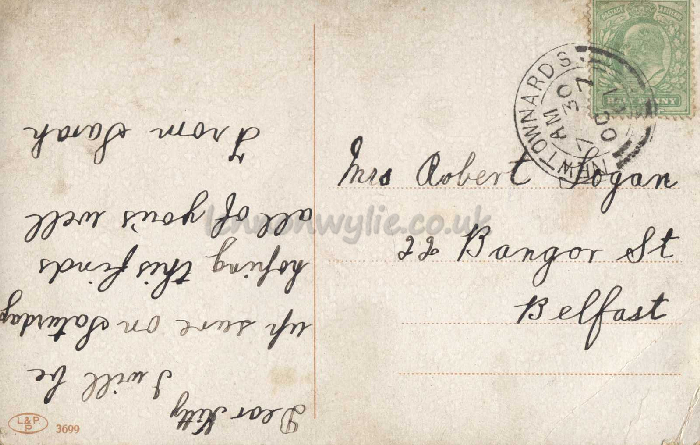 Dear Kitty
I will be
up sure on Saturday
hoping this finds
all of yous well
From Sarah
L&P
P
3699
NEWTOWNARDS
7 30 AM
HALFPENNY
Mrs Robert Logan
22 Bangor St
Belfast
lennonwylie.co.uk